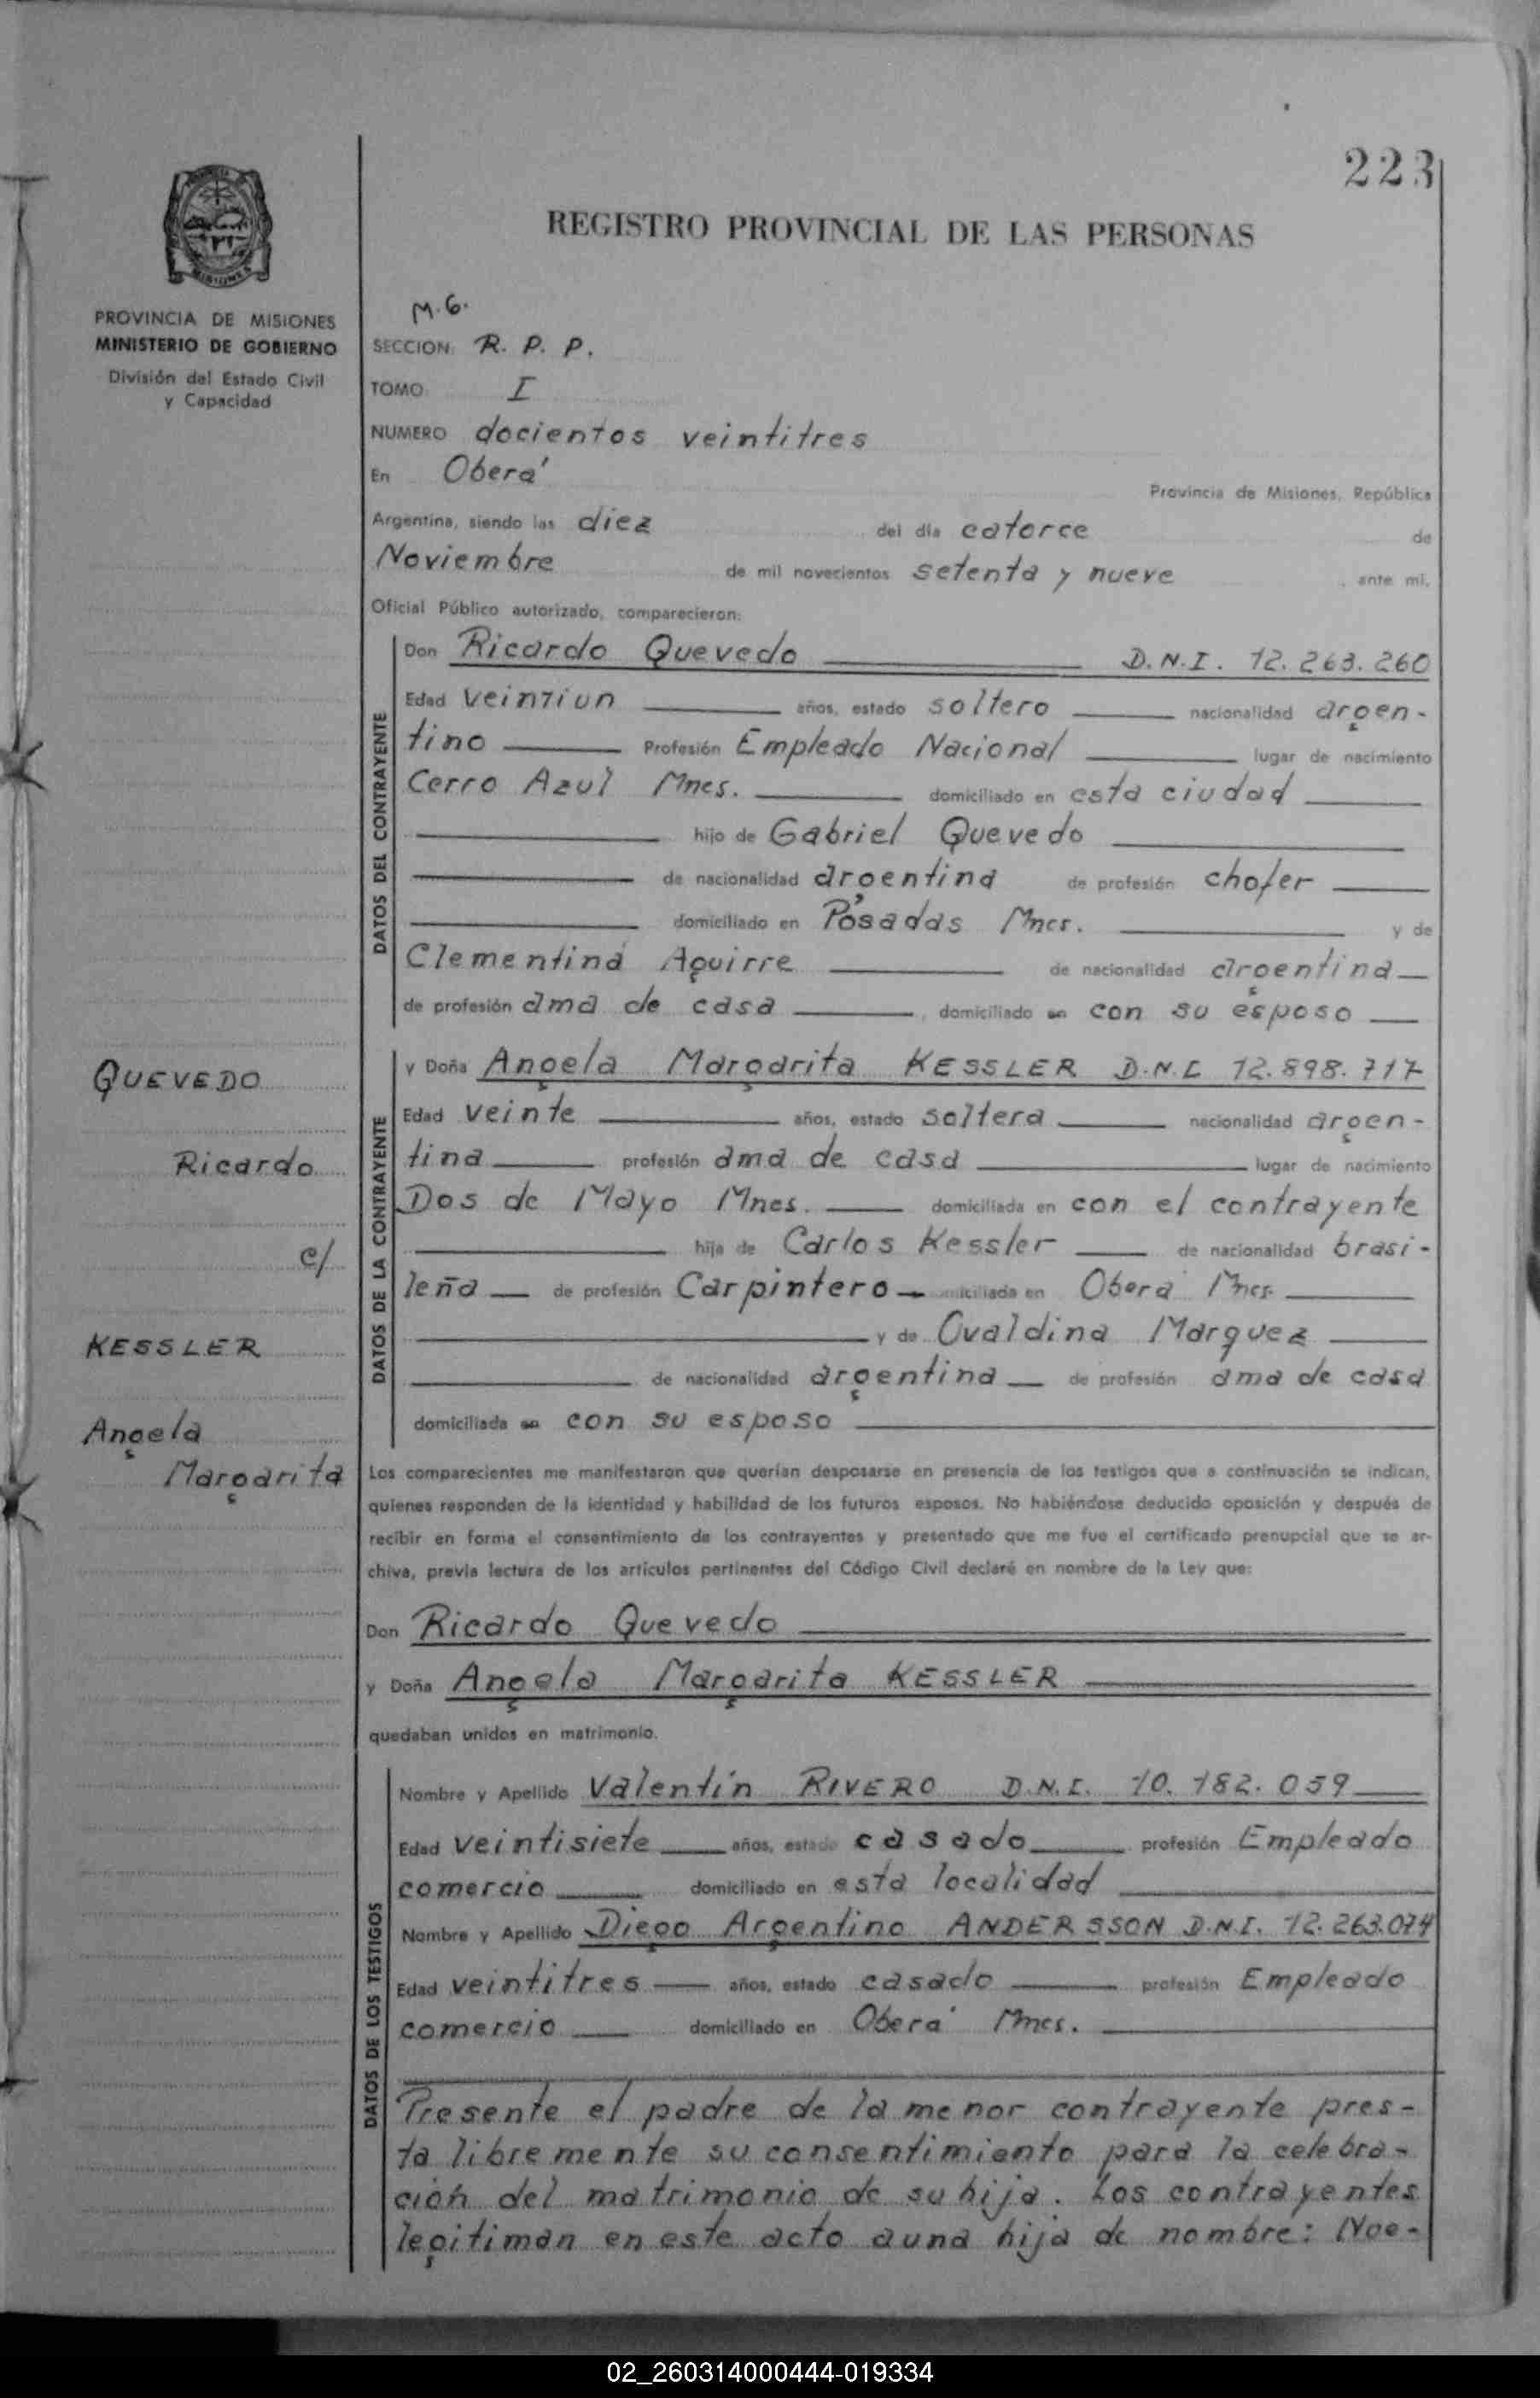 223
REGISTRO PROVINCIAL DE LAS PERSONAS
MISIONES
PROVINCIA DE MISIONES
MINISTERIO DE GOBIERNO
División del Estado Civil
y Capacidad
M.G.
SECCION: R. P. P.
TOMO I
NUMERO docientos veintitres
En Oberá Provincia de Misiones, República
Argentina, siendo las diez del día catorce de
Noviembre de mil novecientos setenta y nueve, ante mí,
Oficial Público autorizado, comparecieron:
DATOS DEL CONTRAYENTE
Don Ricardo Quevedo D.N.I. 12.263.260
Edad veintiun años, estado soltero nacionalidad argen-
tino Profesión Empleado Nacional lugar de nacimiento
Cerro Azul Mnes. domiciliado en esta ciudad
hijo de Gabriel Quevedo
de nacionalidad argentina de profesión chofer
domiciliado en Posadas Mnes. y de
Clementina Aguirre de nacionalidad argentina
de profesión ama de casa, domiciliado en con su esposo
DATOS DE LA CONTRAYENTE
y Doña Angela Margarita KESSLER D.N.I. 12.898.717
Edad veinte años, estado soltera nacionalidad argen-
tina profesión ama de casa lugar de nacimiento
Dos de Mayo Mnes. domiciliada en con el contrayente
hija de Carlos Kessler de nacionalidad brasi-
leña de profesión Carpintero domiciliada en Oberá Mnes.
y de Ovaldina Marquez
de nacionalidad argentina de profesión ama de casa
domiciliada en con su esposo
QUEVEDO
Ricardo
c/
KESSLER
Angela
Margarita
Los comparecientes me manifestaron que querían desposarse en presencia de los testigos que a continuación se indican,
quienes responden de la identidad y habilidad de los futuros esposos. No habiéndose deducido oposición y después de
recibir en forma el consentimiento de los contrayentes y presentado que me fue el certificado prenupcial que se ar-
chiva, previa lectura de los artículos pertinentes del Código Civil declaré en nombre de la Ley que:
Don Ricardo Quevedo
y Doña Angela Margarita KESSLER
quedaban unidos en matrimonio.
DATOS DE LOS TESTIGOS
Nombre y Apellido Valentín RIVERO D.N.I. 10.182.059
Edad veintisiete años, estado casado profesión Empleado
comercio domiciliado en esta localidad
Nombre y Apellido Diego Argentino ANDERSSON D.N.I. 12.263.074
Edad veintitres años, estado casado profesión Empleado
comercio domiciliado en Oberá Mnes.
Presente el padre de la menor contrayente pres-
ta libremente su consentimiento para la celebra-
ción del matrimonio de su hija. Los contrayentes
legitiman en este acto a una hija de nombre: Noe-
02_260314000444-019334